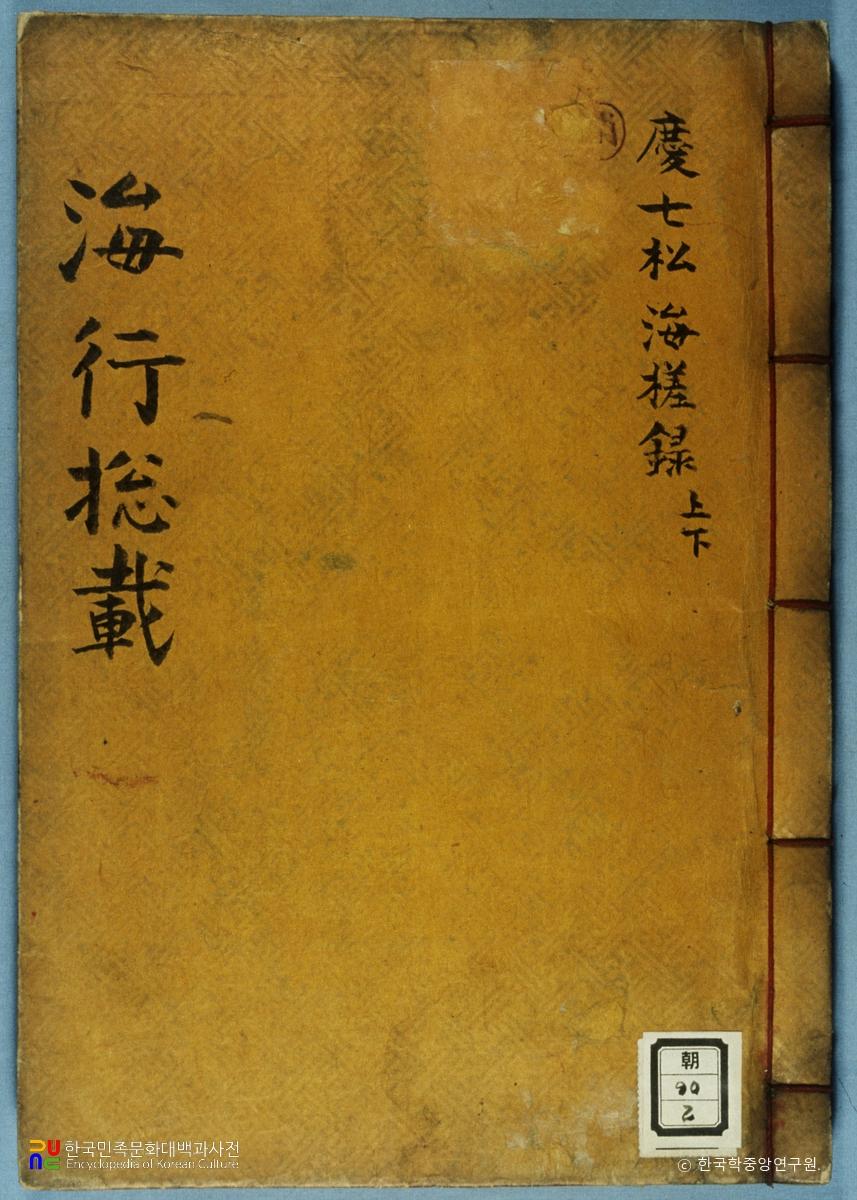 慶七松海槎録上下
海行総載
朝
90
2
한국민족문화대백과사전
Encyclopedia of Korean Culture
© 한국학중앙연구원.